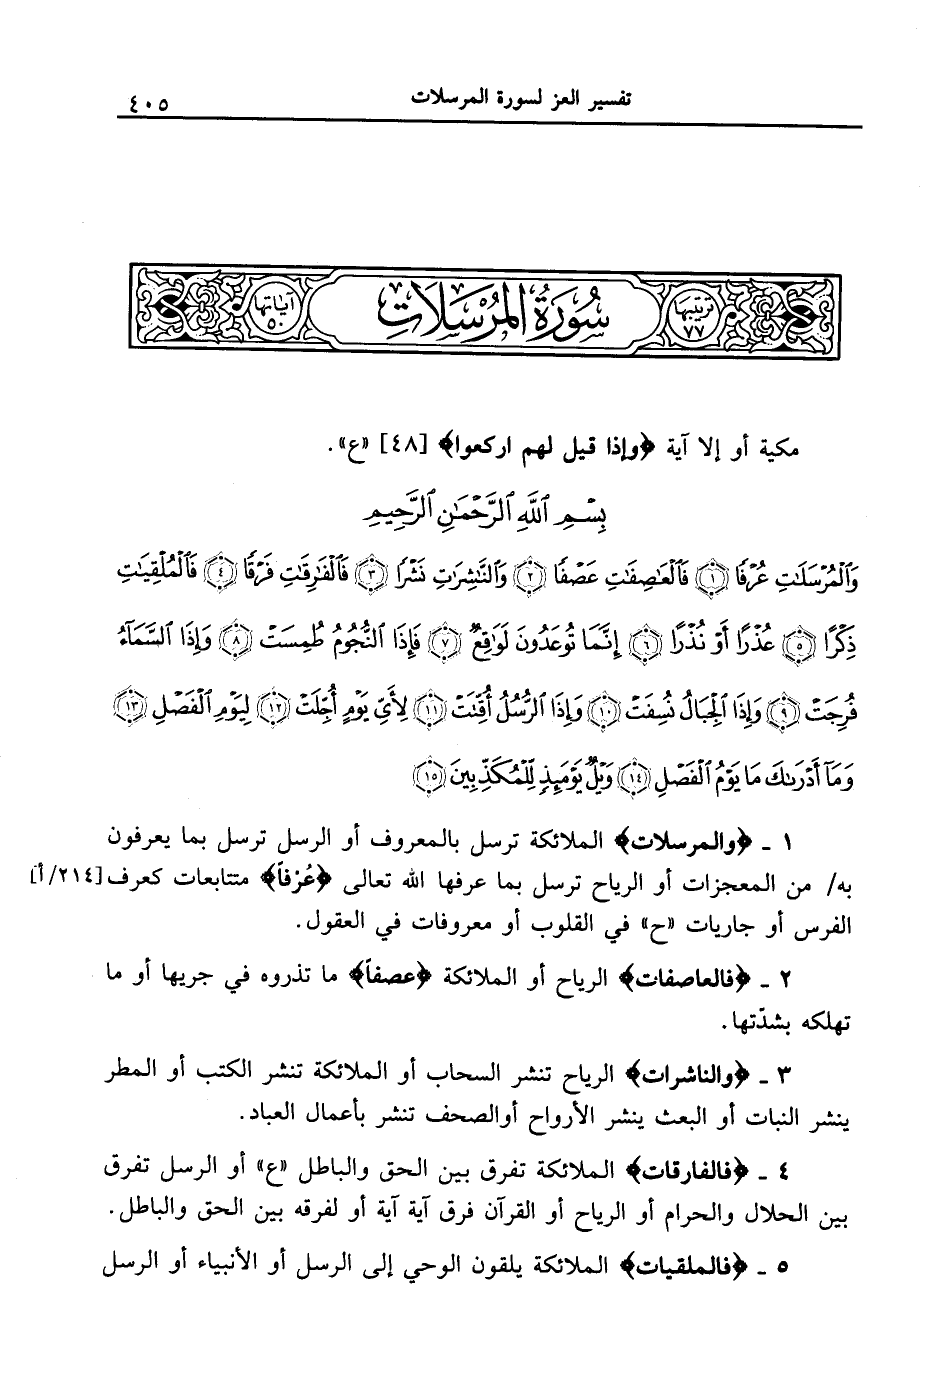 تفسير العز لسورة المرسلات ٤٠٥
ترتيبها ٧٧ سُورَةُ المُرْسَلَات آياتها ٥٠
مكية أو إلا آية ﴿وإذا قيل لهم اركعوا﴾ [٤٨] «ع».
بِسْمِ ٱللَّهِ ٱلرَّحْمَٰنِ ٱلرَّحِيمِ
وَٱلْمُرْسَلَٰتِ عُرْفًا ١ فَٱلْعَٰصِفَٰتِ عَصْفًا ٢ وَٱلنَّٰشِرَٰتِ نَشْرًا ٣ فَٱلْفَٰرِقَٰتِ فَرْقًا ٤ فَٱلْمُلْقِيَٰتِ
ذِكْرًا ٥ عُذْرًا أَوْ نُذْرًا ٦ إِنَّمَا تُوعَدُونَ لَوَٰقِعٌ ٧ فَإِذَا ٱلنُّجُومُ طُمِسَتْ ٨ وَإِذَا ٱلسَّمَآءُ
فُرِجَتْ ٩ وَإِذَا ٱلْجِبَالُ نُسِفَتْ ١٠ وَإِذَا ٱلرُّسُلُ أُقِّتَتْ ١١ لِأَىِّ يَوْمٍ أُجِّلَتْ ١٢ لِيَوْمِ ٱلْفَصْلِ ١٣
وَمَآ أَدْرَىٰكَ مَا يَوْمُ ٱلْفَصْلِ ١٤ وَيْلٌ يَوْمَئِذٍ لِّلْمُكَذِّبِينَ ١٥
١ ـ ﴿والمرسلات﴾ الملائكة ترسل بالمعروف أو الرسل ترسل بما يعرفون
به/ من المعجزات أو الرياح ترسل بما عرفها الله تعالى ﴿عُرْفاً﴾ متتابعات كعرف [٢١٤/أ]
الفرس أو جاريات «ح» في القلوب أو معروفات في العقول.
٢ ـ ﴿فالعاصفات﴾ الرياح أو الملائكة ﴿عصفاً﴾ ما تذروه في جريها أو ما
تهلكه بشدّتها.
٣ ـ ﴿والناشرات﴾ الرياح تنشر السحاب أو الملائكة تنشر الكتب أو المطر
ينشر النبات أو البعث ينشر الأرواح أوالصحف تنشر بأعمال العباد.
٤ ـ ﴿فالفارقات﴾ الملائكة تفرق بين الحق والباطل «ع» أو الرسل تفرق
بين الحلال والحرام أو الرياح أو القرآن فرق آية آية أو لفرقه بين الحق والباطل.
٥ ـ ﴿فالملقيات﴾ الملائكة يلقون الوحي إلى الرسل أو الأنبياء أو الرسل